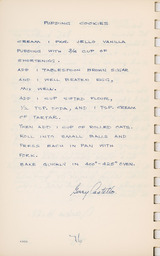 PUDDING COOKIES
CREAM 1 PKG. JELLO VANILLA
PUDDING WITH 3/4 CUP OF
SHORTENING.
ADD 1 TABLESPOON BROWN SUGAR
AND 1 WELL BEATEN EGG,
MIX WELL.
ADD 1 CUP SIFTED FLOUR,
1/4 TSP. SODA, AND 1 TSP. CREAM
OF TARTAR.
THEN ADD 1 CUP OF ROLLED OATS.
ROLL INTO SMALL BALLS AND
PRESS EACH IN PAN WITH
FORK.
BAKE QUICKLY IN 400°-425° OVEN.
Gerry